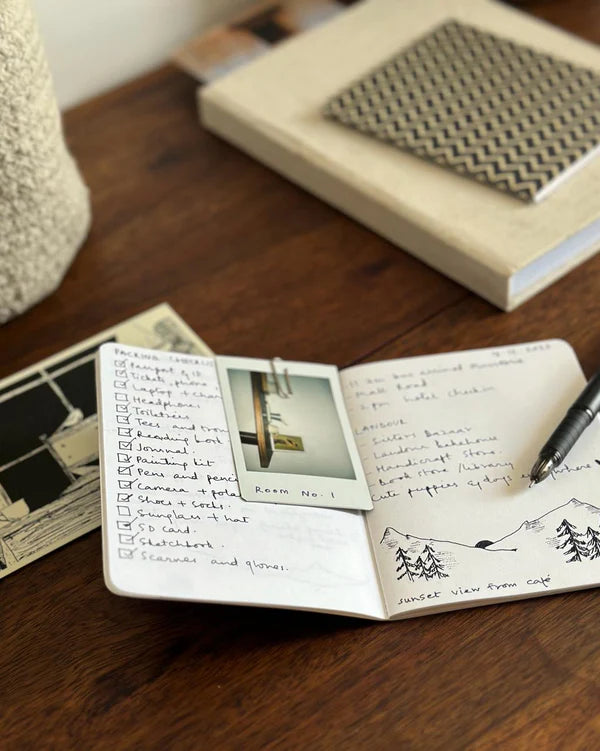 PACKING CHECKLIST
Passport & ID
Tickets, phone
Laptop + char
Headphones
Toiletries
Tees and trou
Reading book
Journal.
Painting kit
Pens and penci
Camera + pola
Shoes + socks.
Sunglass + hat
SD card.
Sketchbook.
Scarves and gloves.
ROOM No. 1
11 am bus arrival
Mall Road
2 pm hotel checkin
LANDOUR
- Sisters Bazaar
- Landour Bakehouse
- Handicraft Store.
- Book store / library
cute puppies & dogs everywhere
sunset view from café